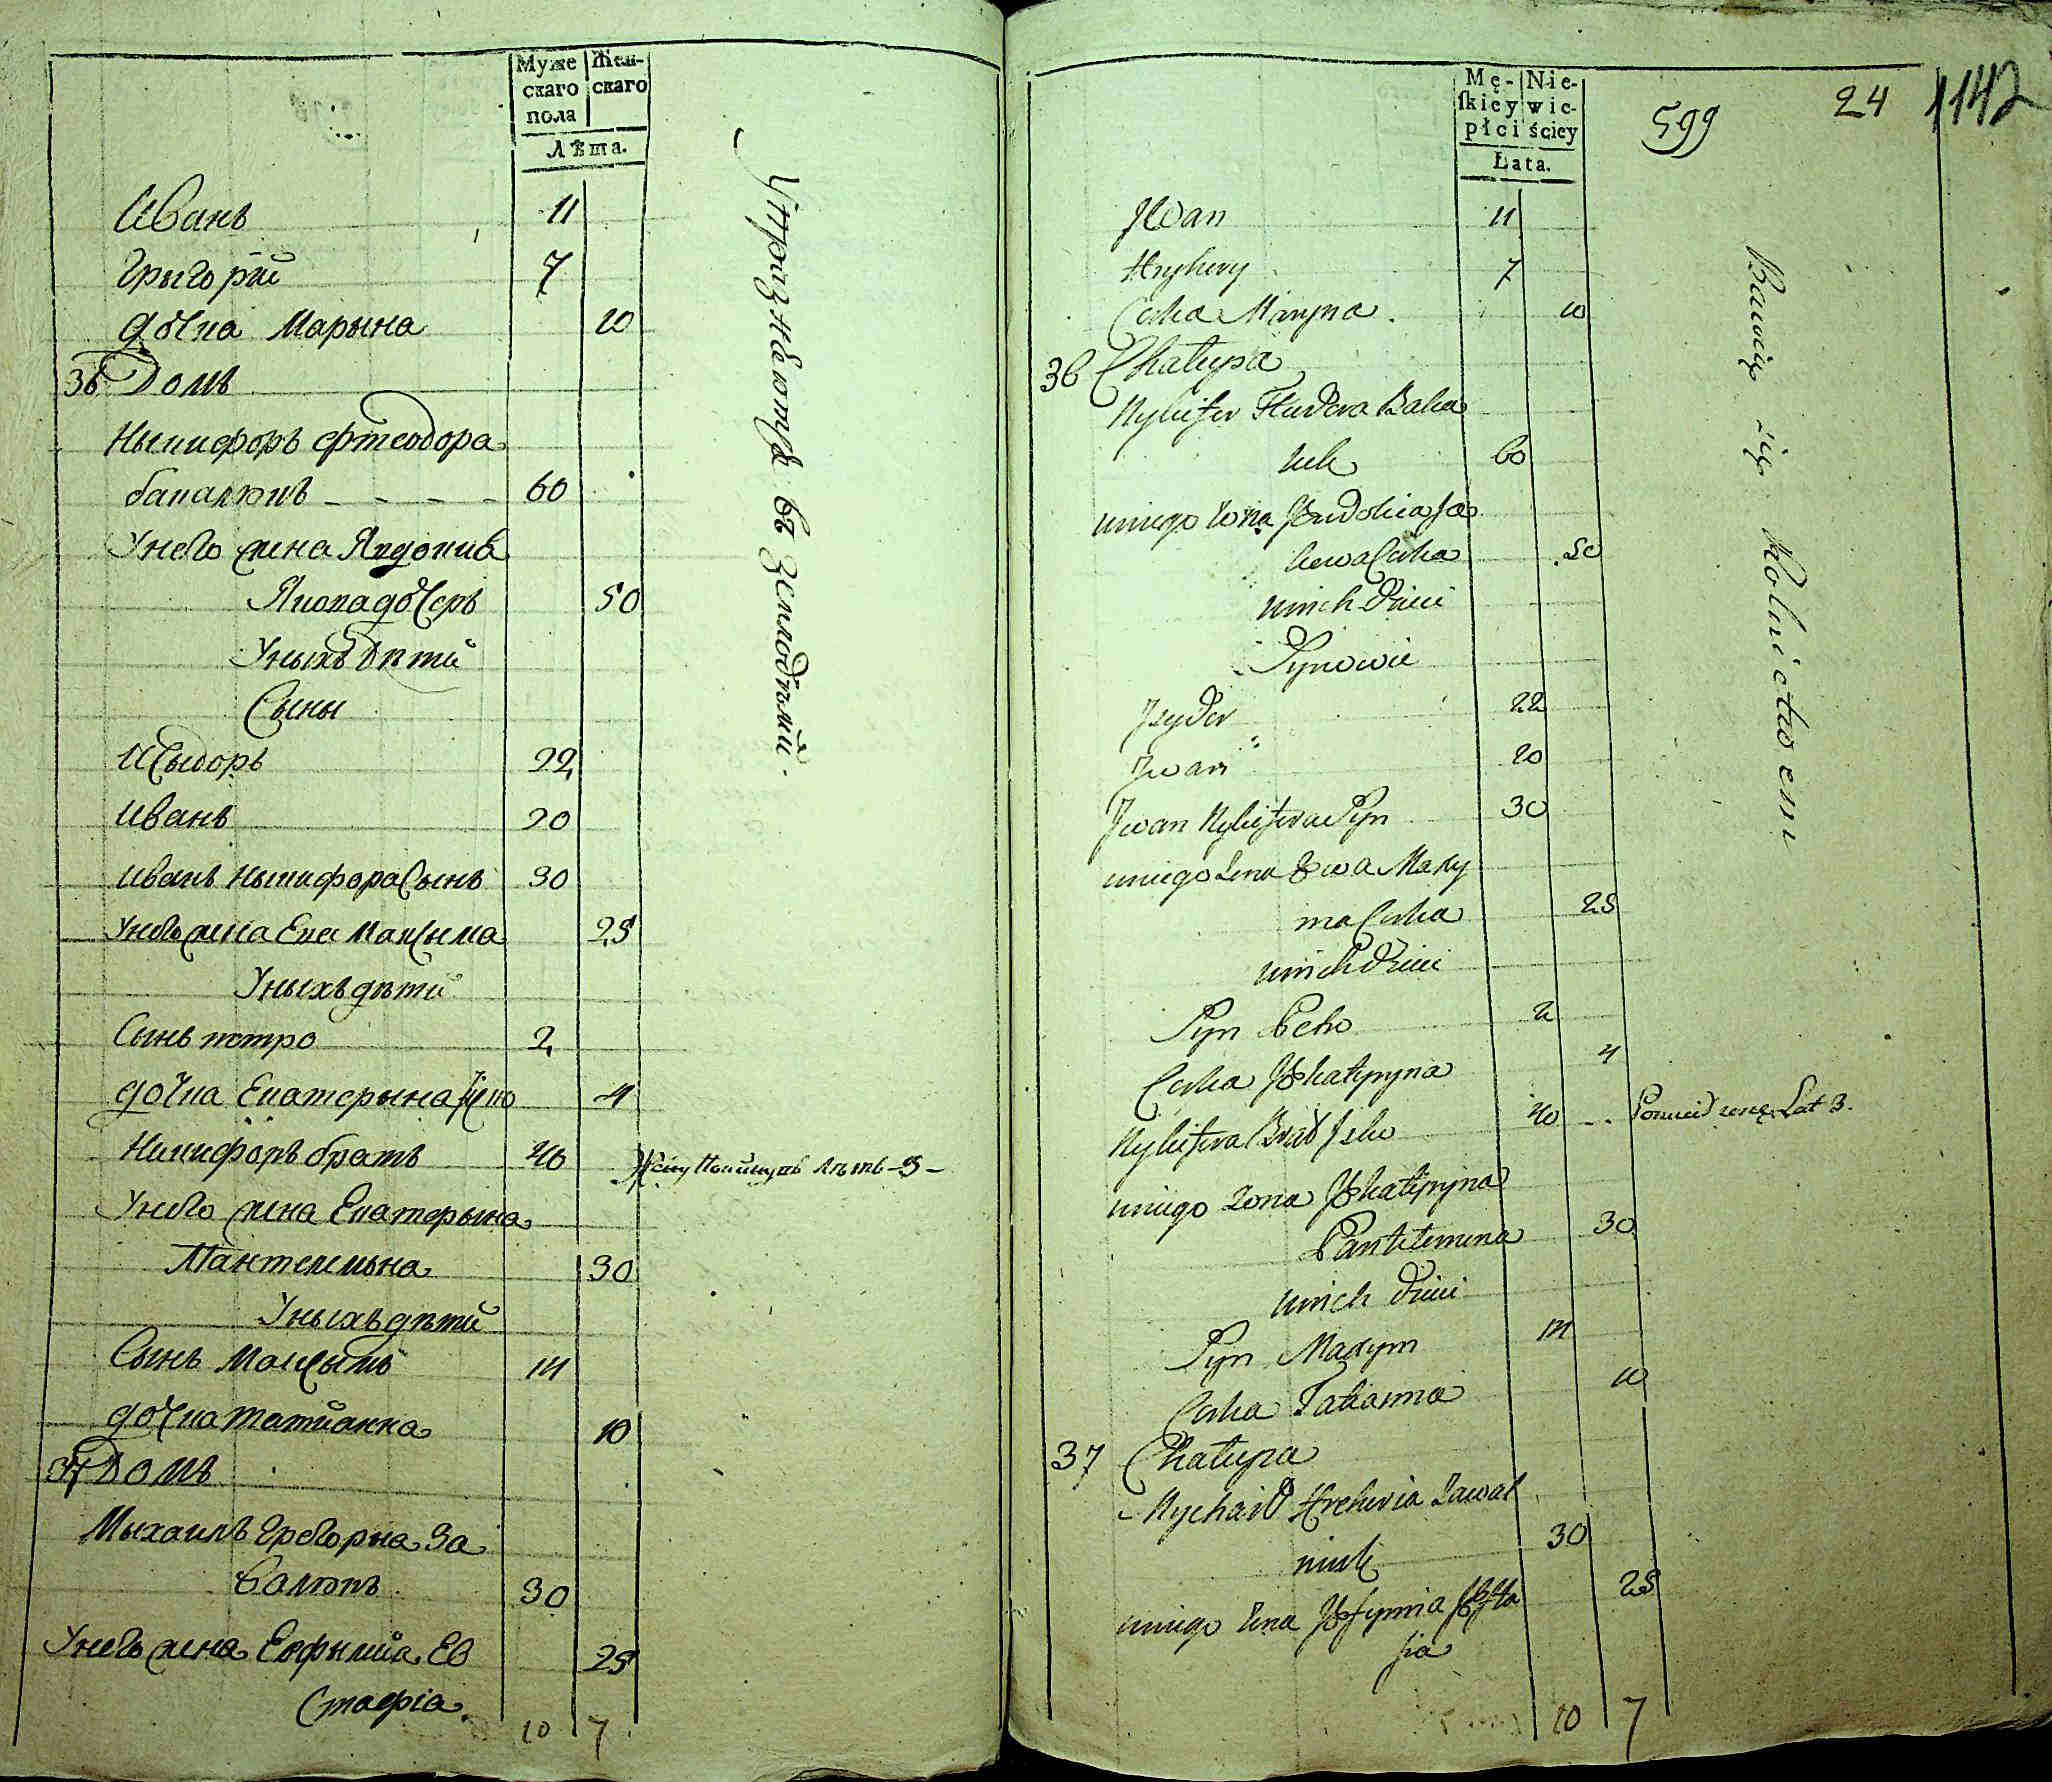 Муже
скаго
пола
Жен-
скаго
Лѣта.
Иванъ 11
Грыгорій 7
дочка Марына 10
36 Домъ
Ныкифоръ Фтеодора
бакалюкъ - - - - 60
У него жена Явдокиа
Якова дочеръ 50
У ныхъ дѣти
Сыны
Исыдоръ 22
Иванъ 20
Иванъ Ныкифора Сынъ 30
У него жена Ева Максыма 25
У ныхъ дѣти
Сынъ петро 2
дочка Екатерына 4
Никифоръ братъ 40
У него жена Екатерына
Пантелемена 30
У ныхъ дѣти
Сынъ Максымъ 14
дочка татианна 10
37 Домъ
Мыхаилъ Грегориа За
валюкъ 30
У него жена Евфымиа Ев
стафіа. 25
10 7
Упражняются въ земледѣлии.
Mę-
ſkiey
płci
Nie-
wie-
ściey
Lata.
599
24
1142
Iwan 11
Hryhory 7
Corka Maryna 10
36 Chałupa
Nykifor Fteodora Baka
luk 60
u niego Zona Jewdokia Ja
kowa Corka 50
u nich dzieci
Synowie
Jzydor 22
Jwan 20
Jwan Nykifora Syn 30
u niego Zona Ewa Maxy
ma Corka 25
u nich dzieci
Syn Petro 2
Corka Jekateryna 4
Nykifora Brat 40 - -
u niego Zona Jekateryna
Pantelemena 30
u nich dzieci
Syn Maxym 14
Corka Tatianna 10
37 Chałupa
Mychaił Hrehoria Zawal
niuk 30
u niego Zona Jefymia Jefsta
fia 25
10 7
Bawią się Rolnictwem